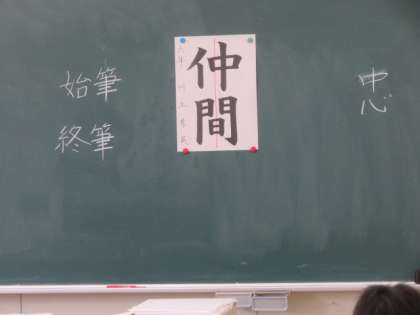 始筆
終筆
仲間
中心